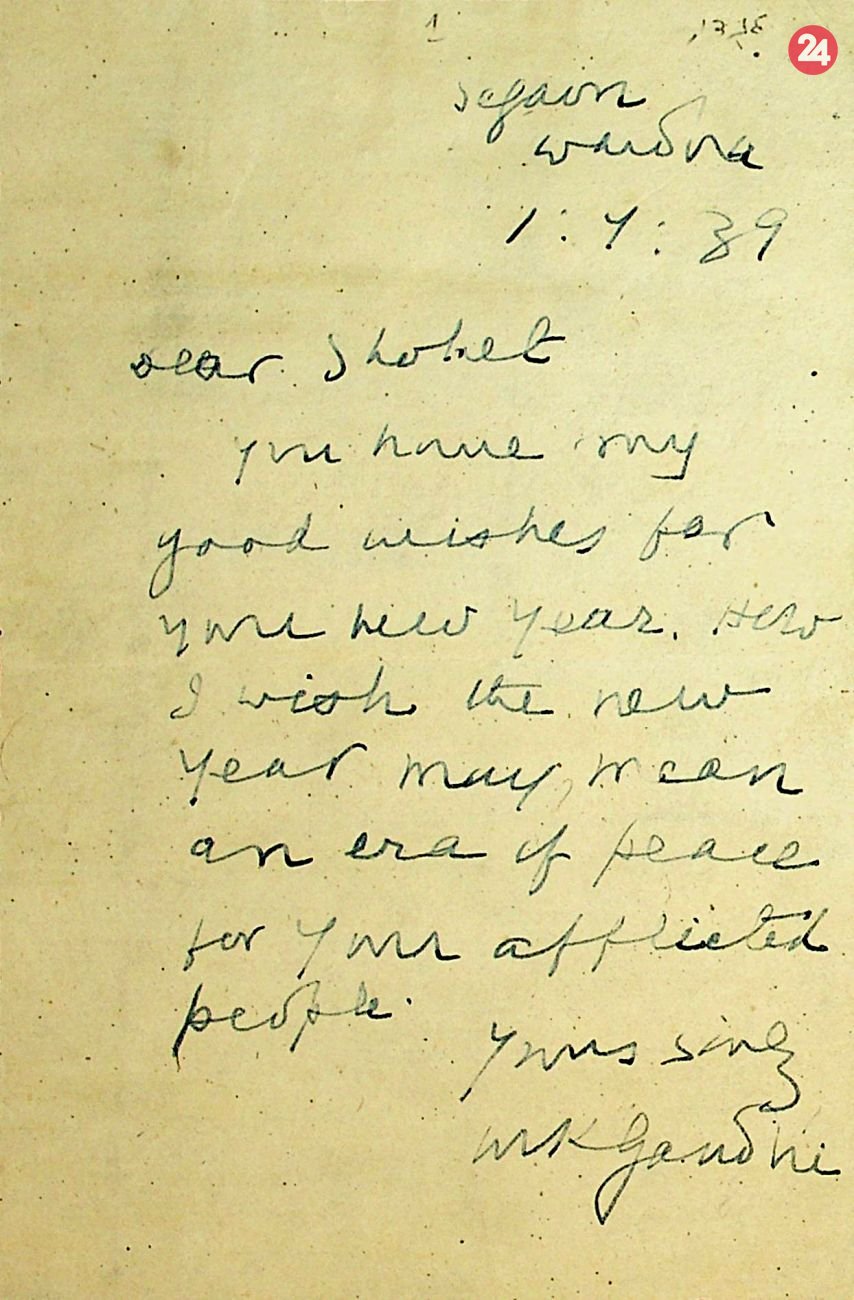 1
24
Segaon
Wardha
1:9:39
Dear Shohet
You have my
good wishes for
your new year. How
I wish the new
year may mean
an era of peace
for your afflicted
people.
Yours sincly
MKGandhi